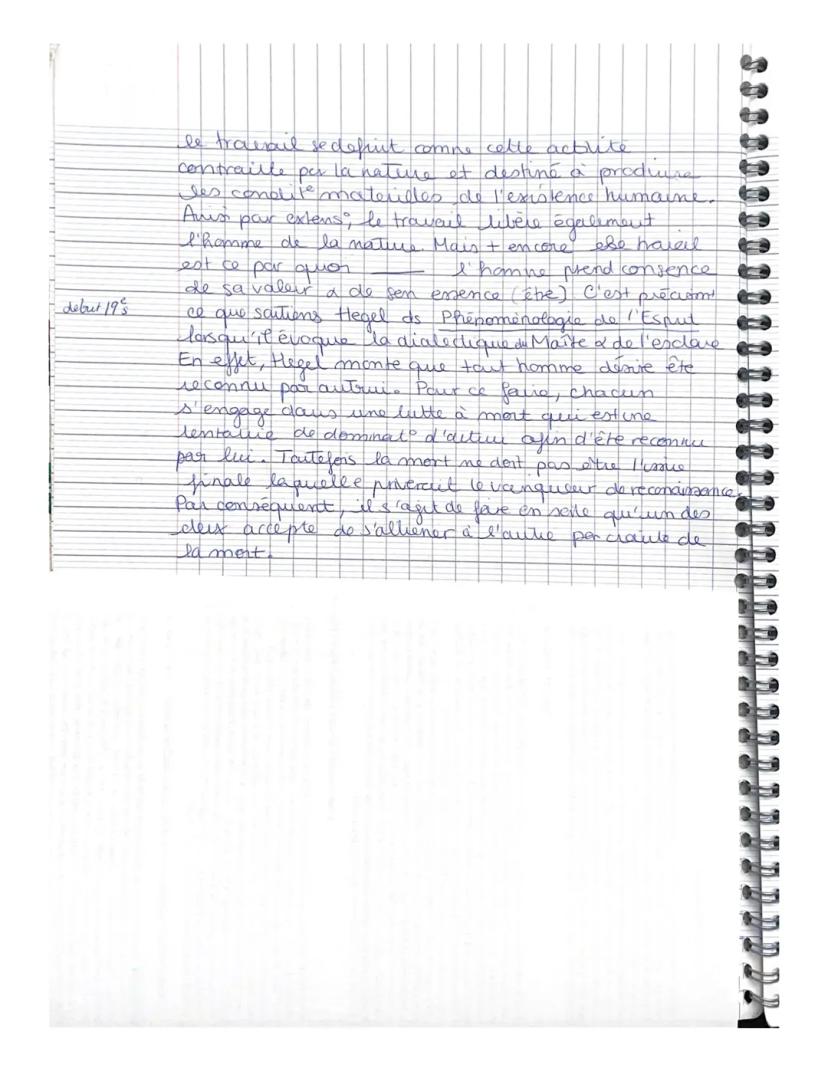 le travail se definit comme cette activité
contrainte par la nature et destiné à produire
les condit° materielles de l'existence humaine.
Ainsi par extens°, le travail libère également
l'homme de la nature. Mais + encore le travail
est ce par quoi ——— l'homme prend consence
de sa valeur & de son essence (être) C'est précisemt
debut 19e s
ce que soutiens Hegel ds Phénoménologie de l'Esprit
lorsqu'il évoque la dialectique du Maître & de l'esclave
En effet, Hegel monte que tout homme désire ête
reconnu par autrui. Pour ce faire, chacun
s'engage dans une lutte à mort qui est une
tentative de dominat° d'autrui afin d'ête reconnu
par lui. Toutefois la mort ne doit pas être l'issue
finale laquelle priverait le vainqueur de reconnaissance.
Par conséquent, il s'agit de faire en sorte qu'un des
deux accepte de s'alliener à l'autre par crainte de
la mort.